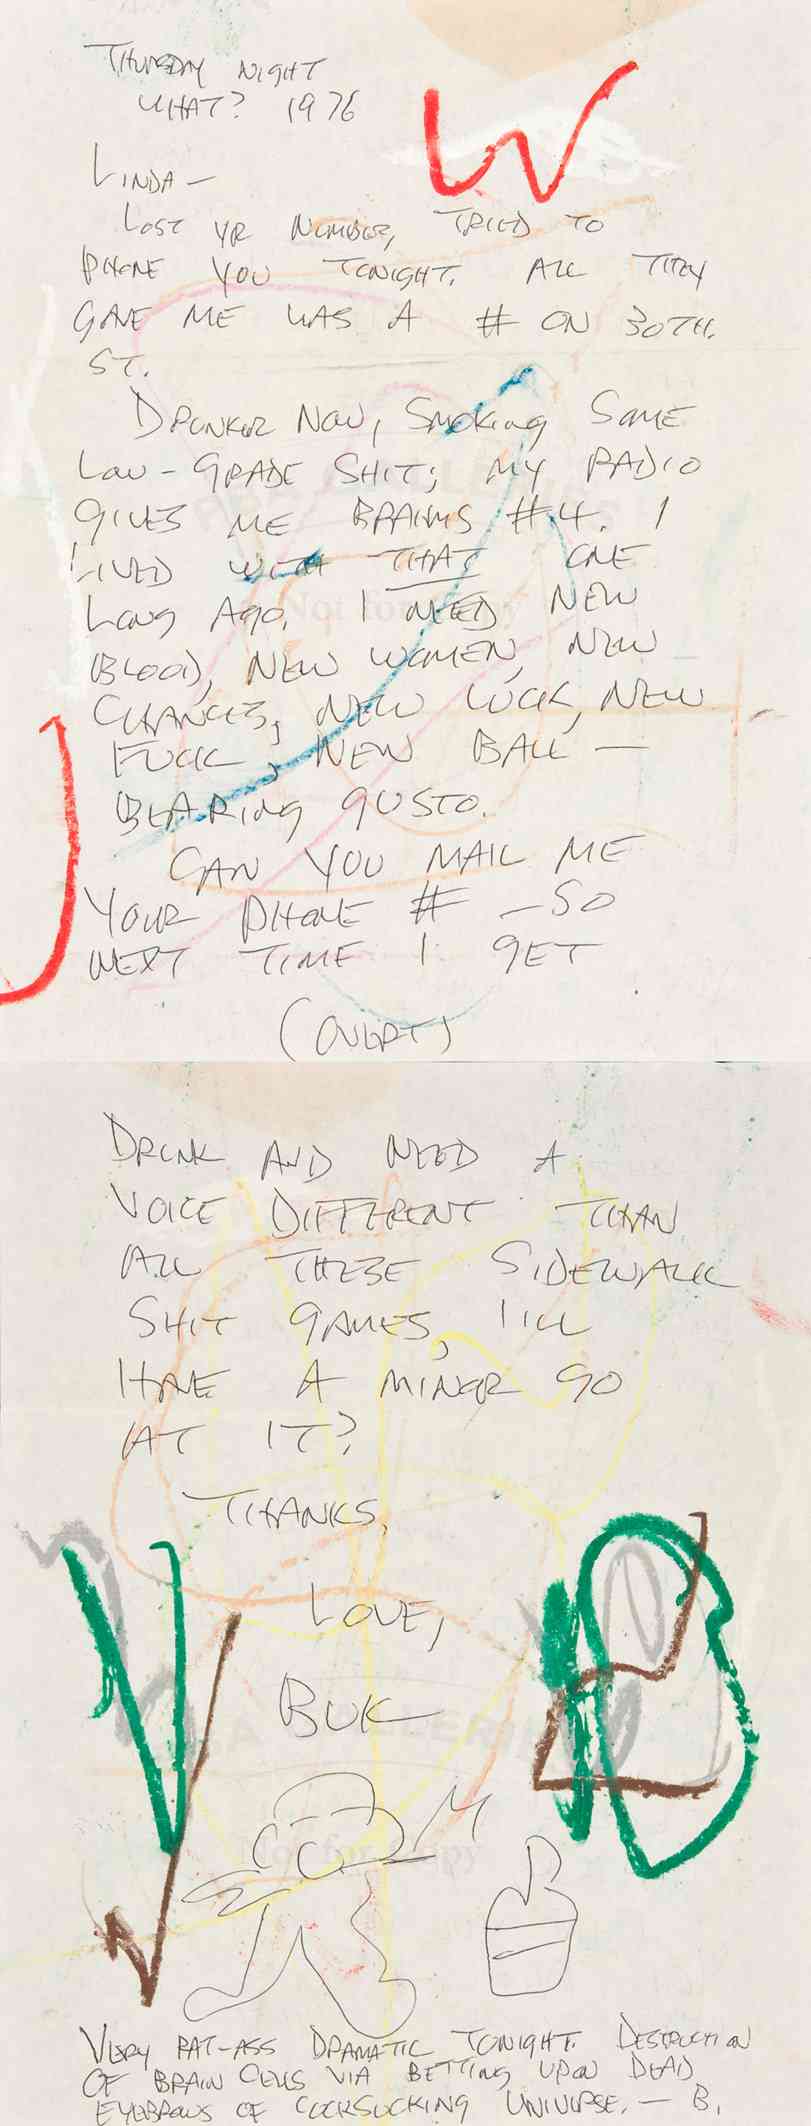 THURSDAY NIGHT
WHAT? 1976
LINDA—
LOST YR NUMBER, TRIED TO
PHONE YOU TONIGHT. ALL THEY
GAVE ME WAS A # ON 30TH.
ST.
DRUNKER NOW, SMOKING SOME
LOW-GRADE SHIT; MY RADIO
GIVES ME BRAHMS #4. I
LIVED WITH THAT ONE
LONG AGO. I NEED NEW
BLOOD, NEW WOMEN, NEW
CHANCES, NEW LUCK, NEW
FUCK, NEW BALL—
BEARING GUSTO.
CAN YOU MAIL ME
YOUR PHONE # —SO
NEXT TIME I GET
(OVER)
DRUNK AND NEED A
VOICE DIFFERENT THAN
ALL THESE SIDEWALK
SHIT GAMES, I'LL
HAVE A MINOR GO
AT IT?
THANKS,
LOVE,
BUK
VERY RAT-ASS DRAMATIC TONIGHT. DESTRUCTION
OF BRAIN CELLS VIA BETTING UPON DEAD
EYEBROWS OF COCKSUCKING UNIVERSE. — B.